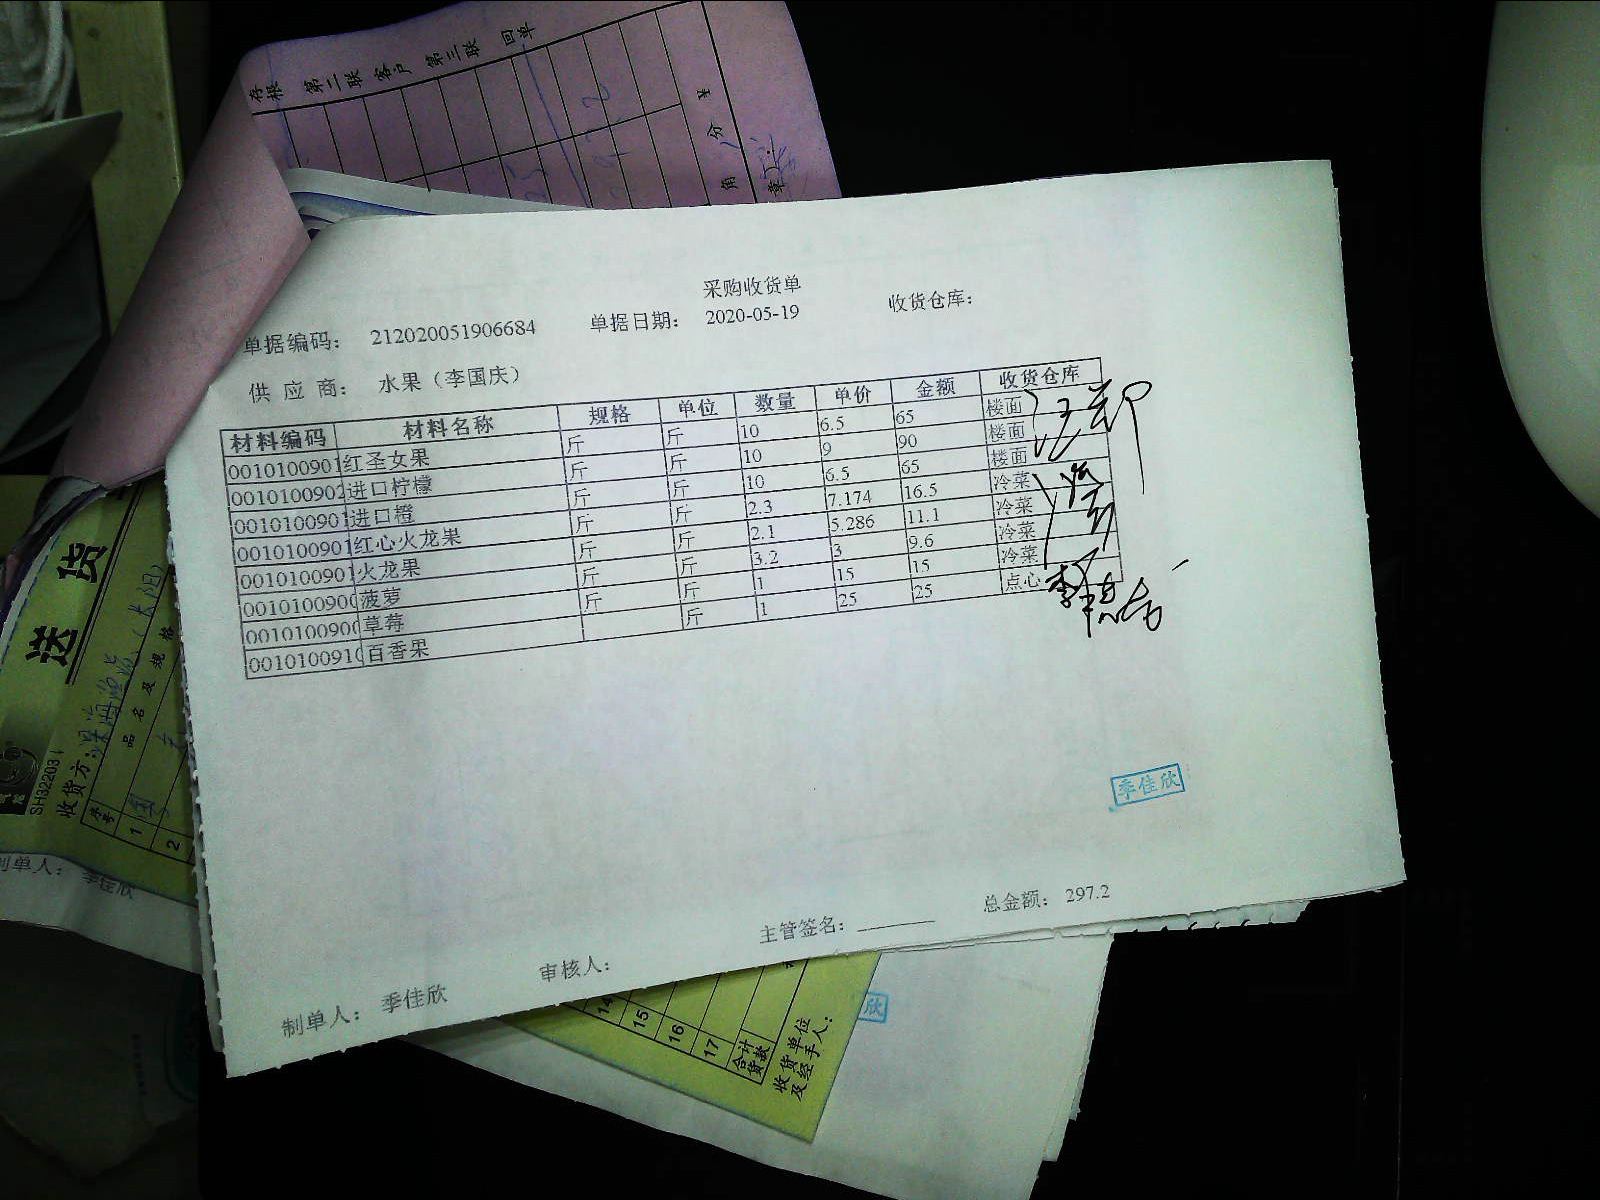 存根 第二联 客户 第三联 回单
¥
分
角
章
采购收货单
单据编码： 212020051906684 单据日期： 2020-05-19 收货仓库：
供 应 商： 水果（李国庆）
材料编码 材料名称 规格 单位 数量 单价 金额 收货仓库
0010100901 红圣女果 斤 斤 10 6.5 65 楼面
0010100902 进口柠檬 斤 斤 10 9 90 楼面
0010100901 进口橙 斤 斤 10 6.5 65 楼面
0010100901 红心火龙果 斤 斤 2.3 7.174 16.5 冷菜
0010100901 火龙果 斤 斤 2.1 5.286 11.1 冷菜
0010100900 菠萝 斤 斤 3.2 3 9.6 冷菜
0010100900 草莓 斤 斤 1 15 15 冷菜
0010100910 百香果 斤 1 25 25 点心
季佳欣
主管签名： 总金额： 297.2
制单人： 季佳欣 审核人：
送 货
SH32203
收货方：
序号 品 名 及 规 格
1
2
制单人： 季佳欣
14
15
16
17
合计货款
收货单位及经手人：
欣